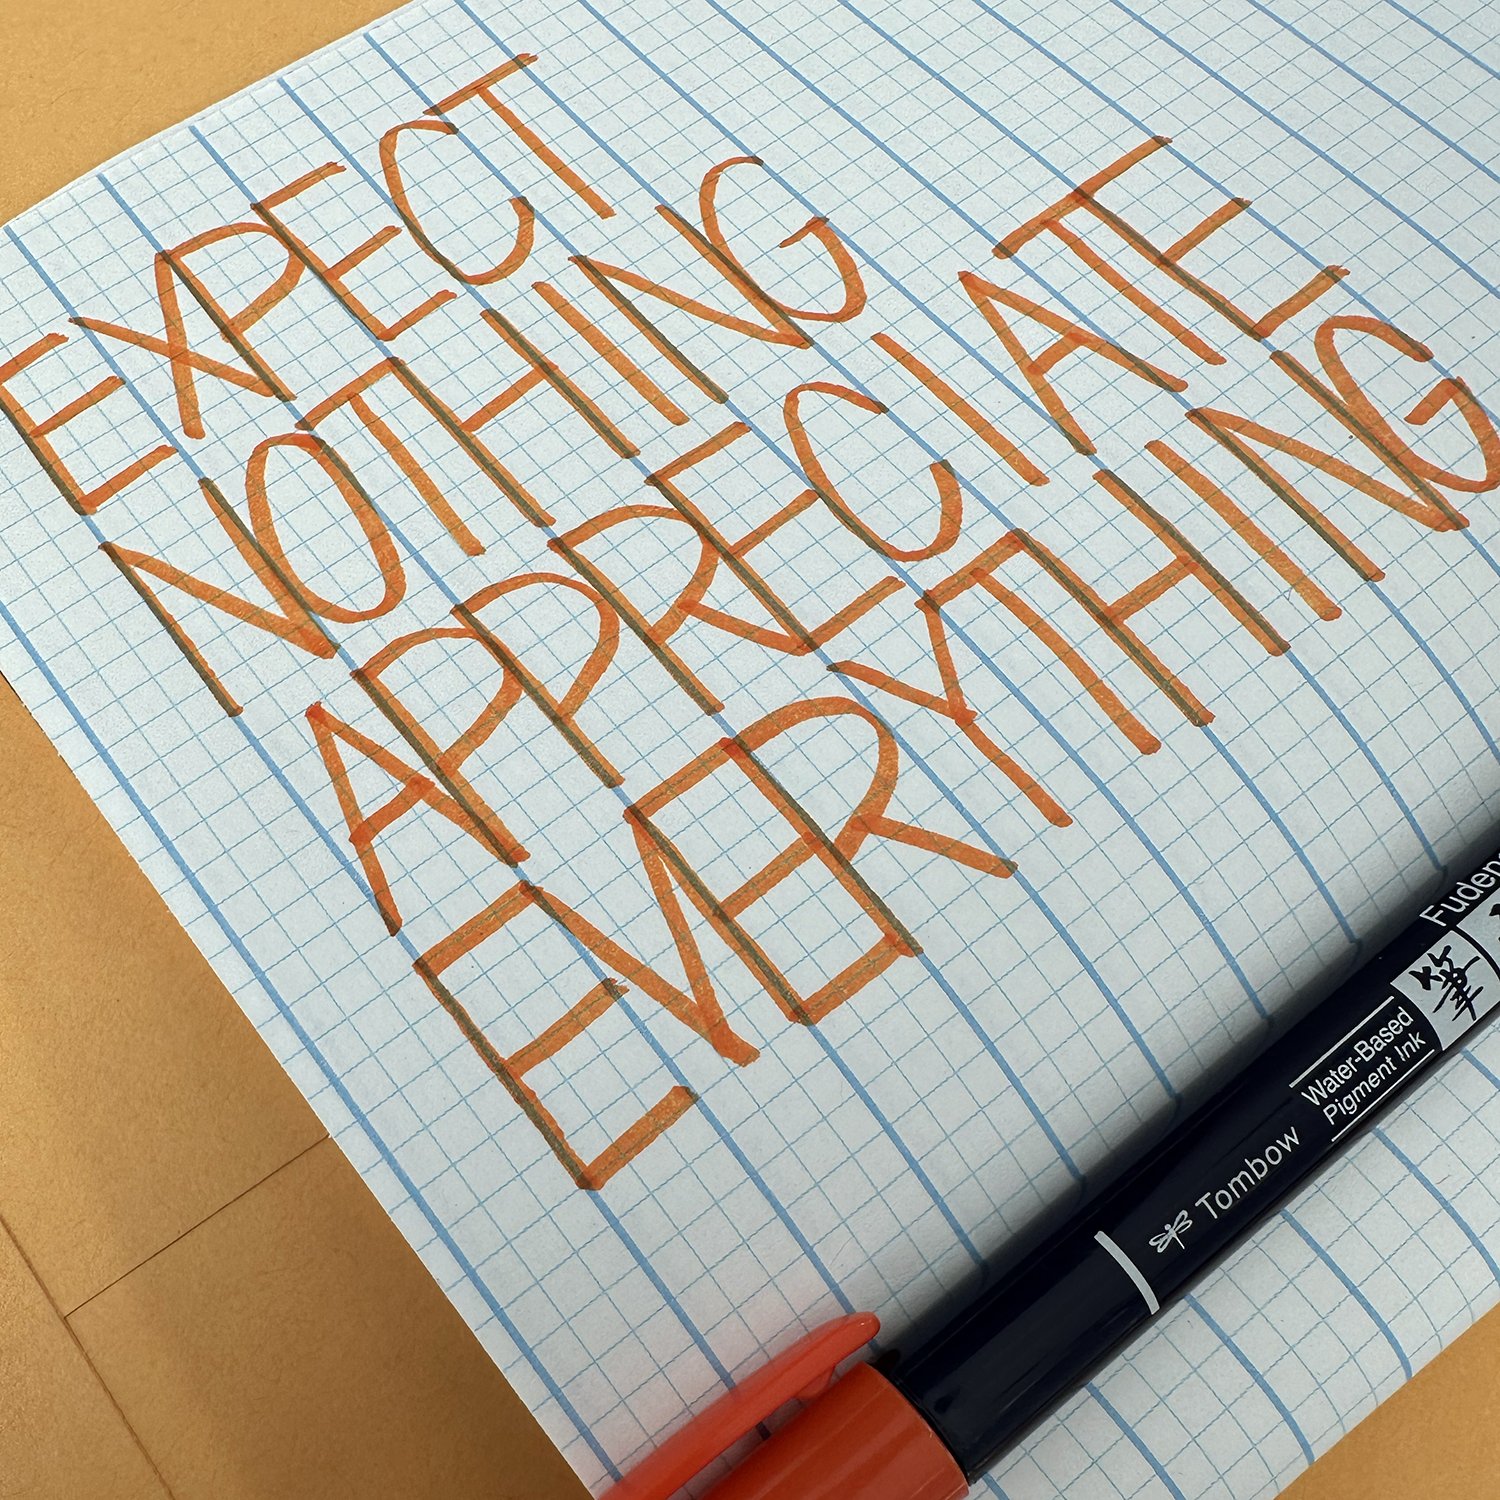 EXPECT
NOTHING
APPRECIATE
EVERYTHING
Water-Based
Pigment Ink
Tombow
筆